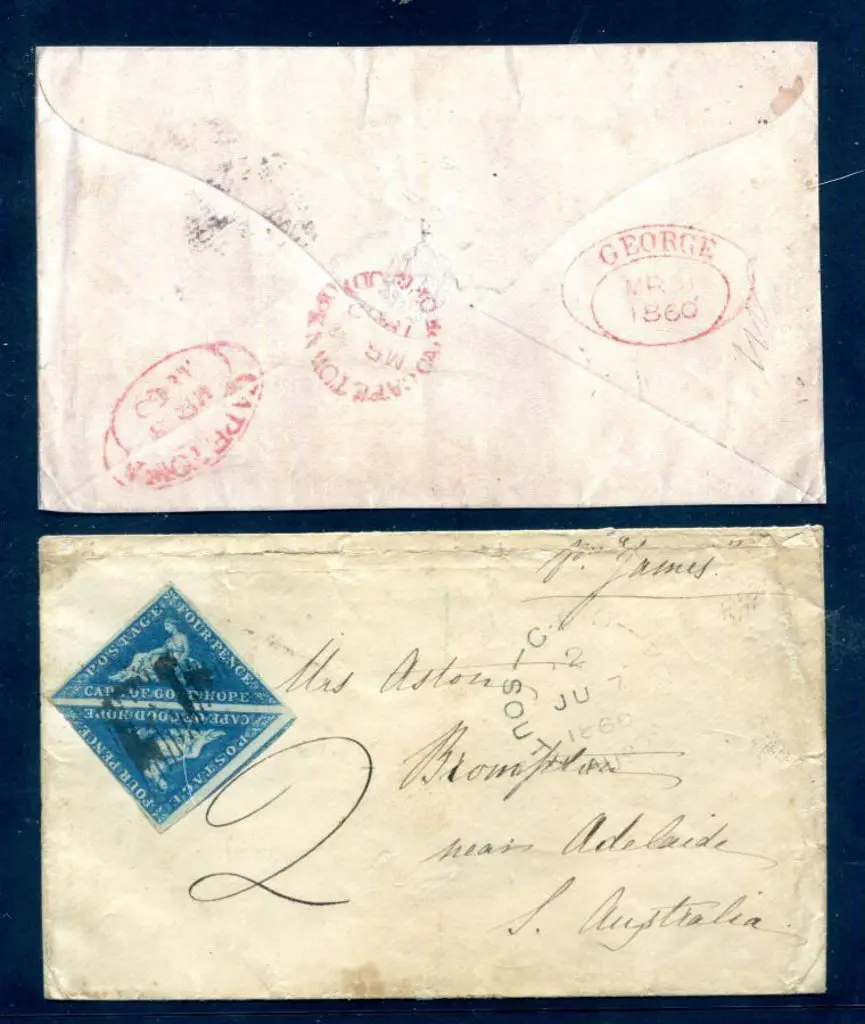 GEORGE
MR
1860
CAPE TOWN CAPE OF GOOD
MR
CAPE TOWN
MR 3
60
James
POSTAGE
FOUR PENCE
CAPE OF GOOD HOPE
CAPE OF GOOD HOPE
FOUR PENCE
POSTAGE
Mrs Aston
SOUT
JU 7
1860
Brompton
near Adelaide
S. Australia
2